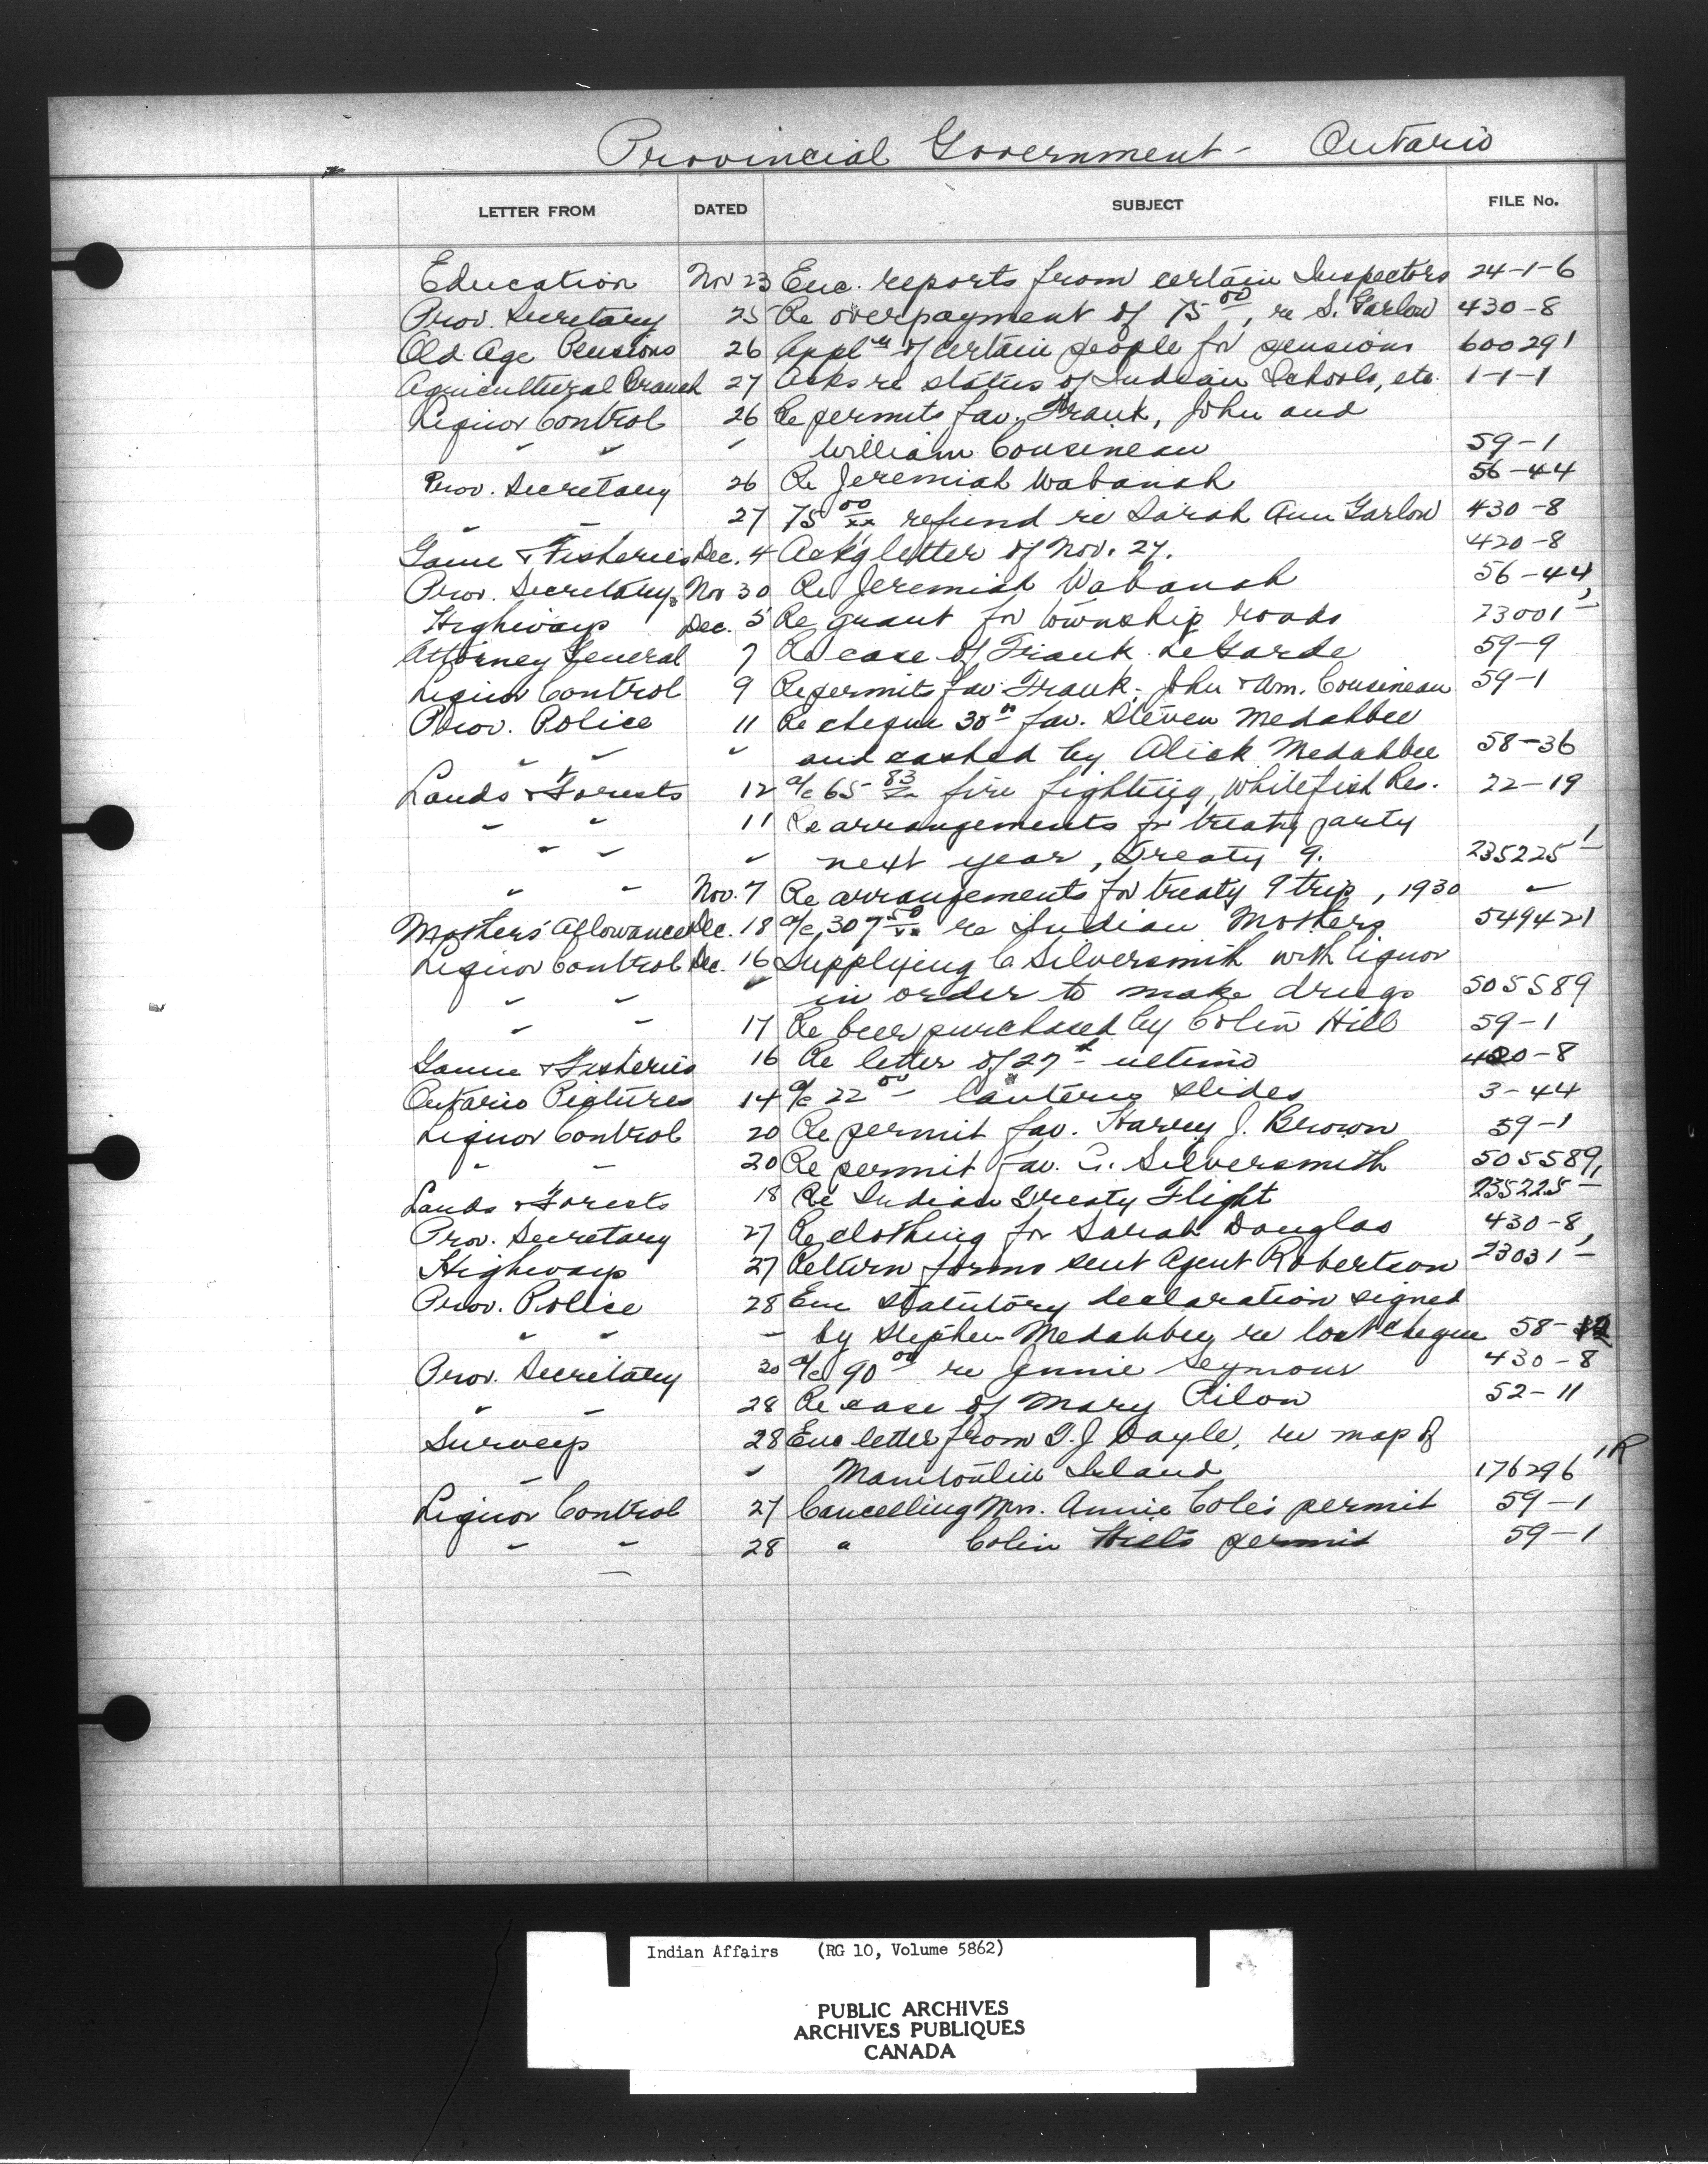 Provincial Government - Ontario
LETTER FROM DATED SUBJECT FILE No.
Education Nov 23 Enc. reports from certain Inspectors 24-1-6
Prov. Secretary 25 Re overpayment of 75 00, re S. Garlow 430-8
Old Age Pensions 26 Appl ns of certain people for pensions 600291
Agricultural Branch 27 Asks re status of Indian Schools, etc. 1-1-1
Liquor Control 26 Re permits fav. Frank, John and
" " " William Cousineau 59-1
Prov. Secretary 26 Re Jeremiah Wabanah 56-44
" " 27 75 00/xx refund re Sarah Ann Garlow 430-8
Game & Fisheries Dec. 4 Ackg letter of Nov. 27. 420-8
Prov. Secretary Nov 30 Re Jeremiah Wabanah 56-44
Highways Dec. 5 Re grant for township roads 23001-1
Attorney General 7 Re case of Frank LeGarde 59-9
Liquor Control 9 Re permits fav. Frank, John & Wm. Cousineau 59-1
Prov. Police 11 Re cheque 30 00 fav. Steven Medahbee
" " " and cashed by Alick Medahbee 58-36
Lands & Forests 12 a/c 65 83/xx fire fighting, Whitefish Res. 22-19
" " 11 Re arrangements for treaty party
" " " next year, Treaty 9. 235225-1
" " Nov. 7 Re arrangements for treaty 9 trip, 1930 "
Mothers' Allowance Dec. 18 a/c 307 50/xx re Indian Mothers 549421
Liquor Control Dec. 16 Supplying C Silversmith with liquor
" " " in order to make drugs 505589
" " 17 Re beer purchased by Colin Hill 59-1
Game & Fisheries 16 Re letter of 27th ultimo 420-8
Ontario Pictures 14 a/c 22 00 lantern slides 3-44
Liquor Control 20 Re permit fav. Harvey J. Brown 59-1
" " 20 Re permit fav. C. Silversmith 505589
Lands & Forests 18 Re Indian Treaty Flight 235225-1
Prov. Secretary 27 Re clothing for Sarah Douglas 430-8
Highways 27 Return forms sent Agent Robertson 23031-1
Prov. Police 28 Enc statutory declaration signed
" " " by Stephen Medahbee, re lost cheque 58-
Prov. Secretary 30 a/c 90 00 re Jennie Seymour 430-8
" " 28 Re case of Mary Pilon 52-11
Surveys 28 Enc letter from T. J. Doyle, re map of
" " Manitoulin Island 176296-1R
Liquor Control 27 Cancelling Mrs. Annie Cole's permit 59-1
" " 28 " Colin Hill's permit 59-1
Indian Affairs (RG 10, Volume 5862)
PUBLIC ARCHIVES
ARCHIVES PUBLIQUES
CANADA